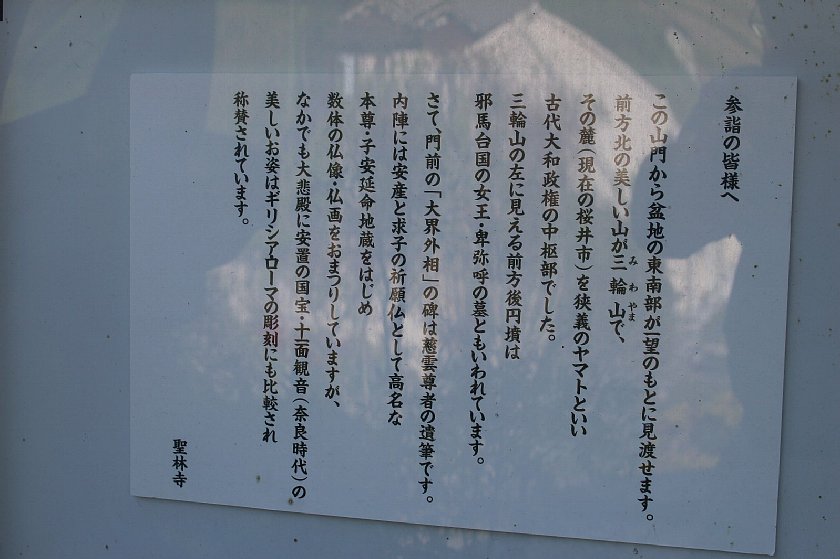 参詣の皆様へ
この山門から盆地の東南部が一望のもとに見渡せます。
前方北の美しい山が三輪山で、
みわやま
その麓(現在の桜井市)を狭義のヤマトといい
古代大和政権の中枢部でした。
三輪山の左に見える前方後円墳は
邪馬台国の女王・卑弥呼の墓ともいわれています。
さて、門前の「大界外相」の碑は慈雲尊者の遺筆です。
内陣には安産と求子の祈願仏として高名な
本尊・子安延命地蔵をはじめ
数体の仏像・仏画をおまつりしていますが、
なかでも大悲殿に安置の国宝・十一面観音(奈良時代)の
美しいお姿はギリシア・ローマの彫刻にも比較され
称賛されています。
聖林寺